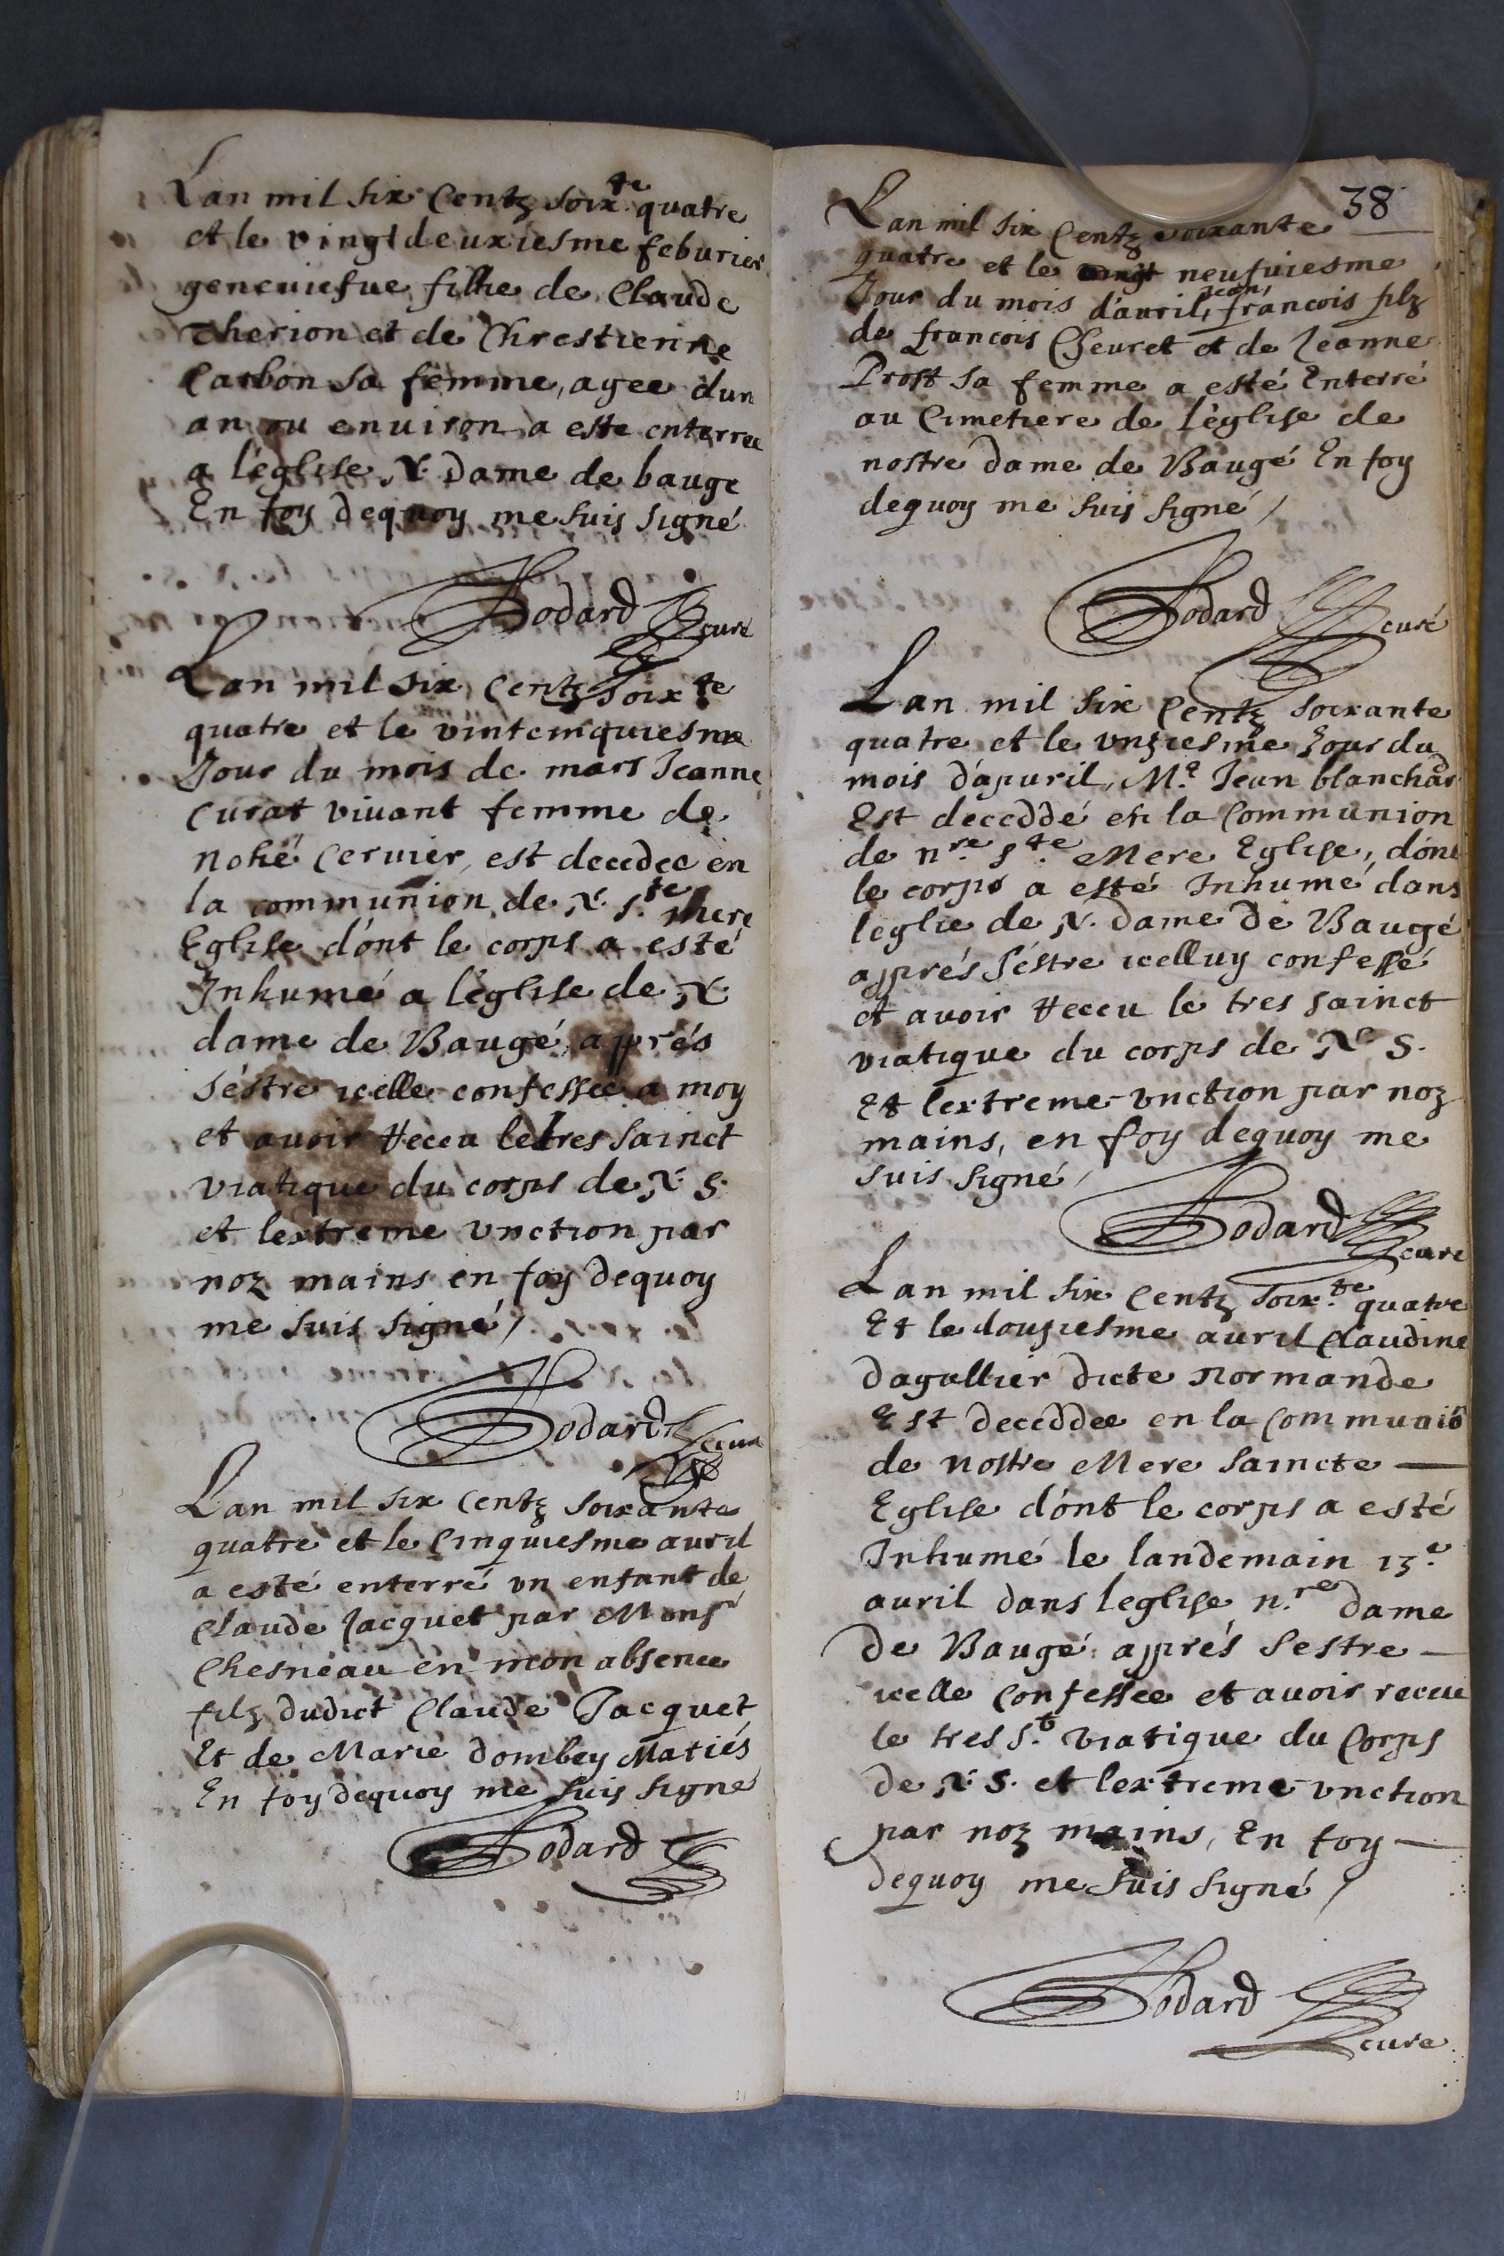 Lan mil six Centz soix.te quatre
et le vingtdeuxiesme feburier
geneuiefue fillie de Claude
Therion et de Chrestienne
Carbon sa femme, agee dun
an ou enuiron a este enterree
a l'eglise N. Dame de bauge
En foy dequoy me suis signé
Bodard curé
Lan mil six Centz soix.te
quatre et le vintcinquiesme
Jour du mois de mars Jeanne
Curat viuant femme de
Nohé Ceruier, est decedee en
la communion de N. S.te Mere
Eglise dont le corps a esté
Inhumé a l'église de N.
dame de Baugé, apprés
s'éstre icelle confessee a moy
et auoir receu le tres sainct
viatique du corps de N. S.
et lextreme vnction par
noz mains en foy dequoy
me suis signé /
Bodard curé
Lan mil six Centz soixante
quatre et le Cinquiesme auril
a esté enterré vn enfant de
Claude Jacquet par Monsr
Chesneau en mon absence
filz dudict Claude Jacquet
Et de Marie dombey Matiés
En foy dequoy me suis signé
Bodard
38
Lan mil six Centz soixante
quatre et le neufuiesme
Jour du mois d'auril, Jean, francois filz
de francois Cheuret et de Jeanne
Prost sa femme a esté Enterré
au Cimetiere de l'église de
nostre dame de Baugé En foy
dequoy me suis signé /
Bodard curé
Lan mil six Centz soixante
quatre et le vnziesme Jour du
mois d'apuril, M.e Jean blanchard
Est deceddé en la Communion
de n.re S.te Mere Eglise, dont
le corps a esté Inhumé dans
leglie de N. dame de Baugé
apprés s'éstre icelluy confessé
et auoir receu le tres sainct
viatique du corps de N. S.
Et lextreme vnction par noz
mains, en foy dequoy me
suis signé /
Bodard curé
Lan mil six Centz soix.te quatre
Et le douziesme auril Claudine
Dagallier dicte Normande
Est deceddee en la Communiõ
de nostre Mere Saincte
Eglise dont le corps a esté
Inhumé le landemain 13.e
auril dans leglise n.re dame
de Baugé apprés sestre
icelle Confessee et auoir receu
le tres s.t viatique du Corps
de N. S. et lextreme vnction
par noz mains, En foy
dequoy me suis signé /
Bodard cure